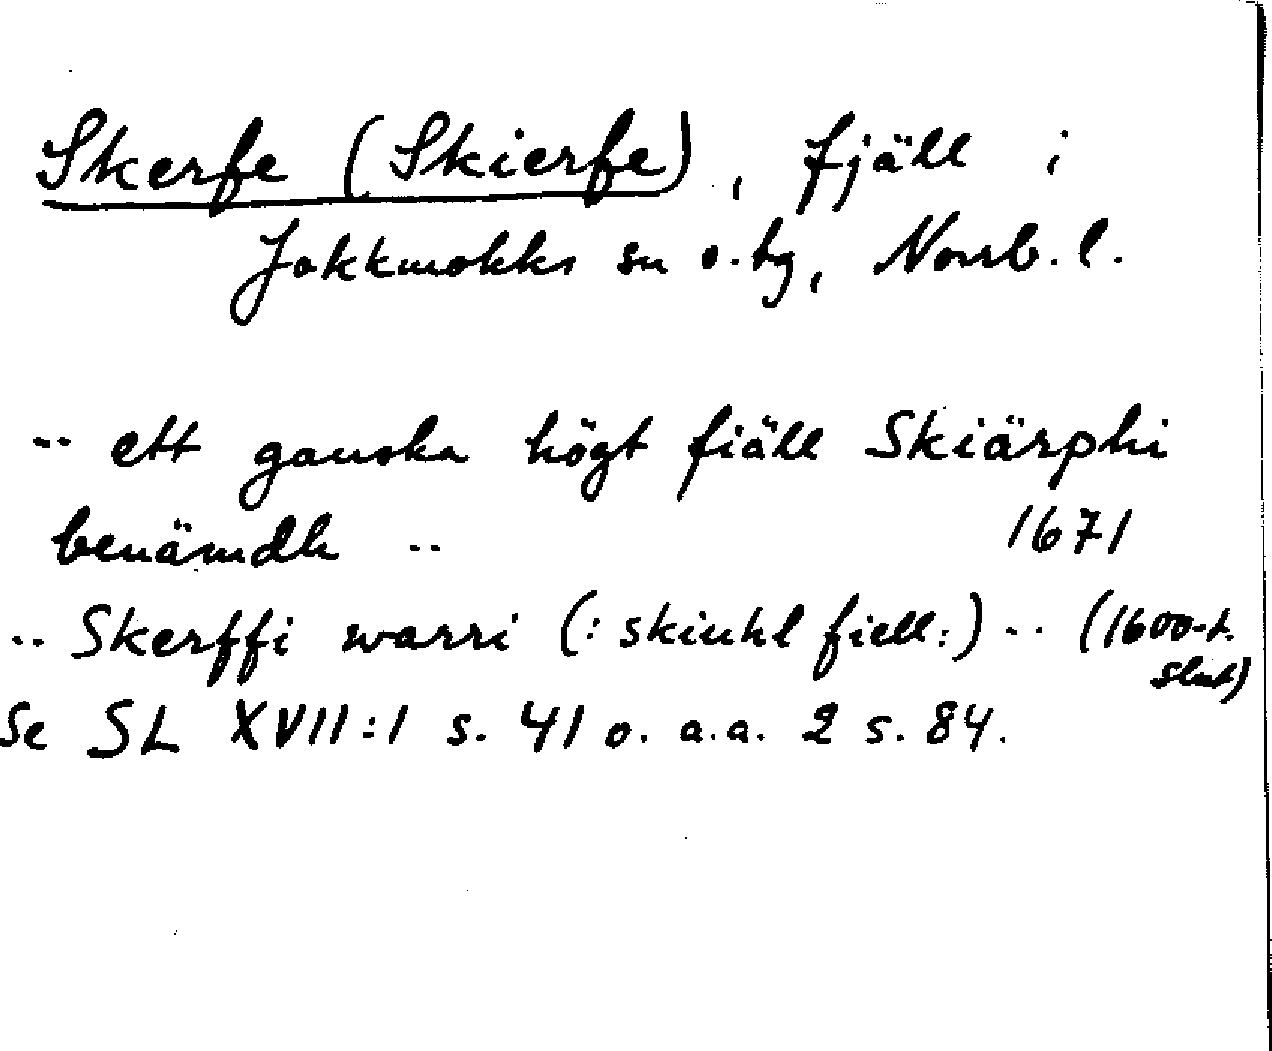 Skerfe (Skierfe), fjäll i
Jokkmokks sn o. tg, Norrb. l.
.. ett ganska högt fiäll Skiärphi
benämdh .. 1671
.. Skerffi warri (: skiuhl fiell:) .. (1600-t. slut)
Se SL XVII:1 s. 41 o. a.a. 2 s. 84.